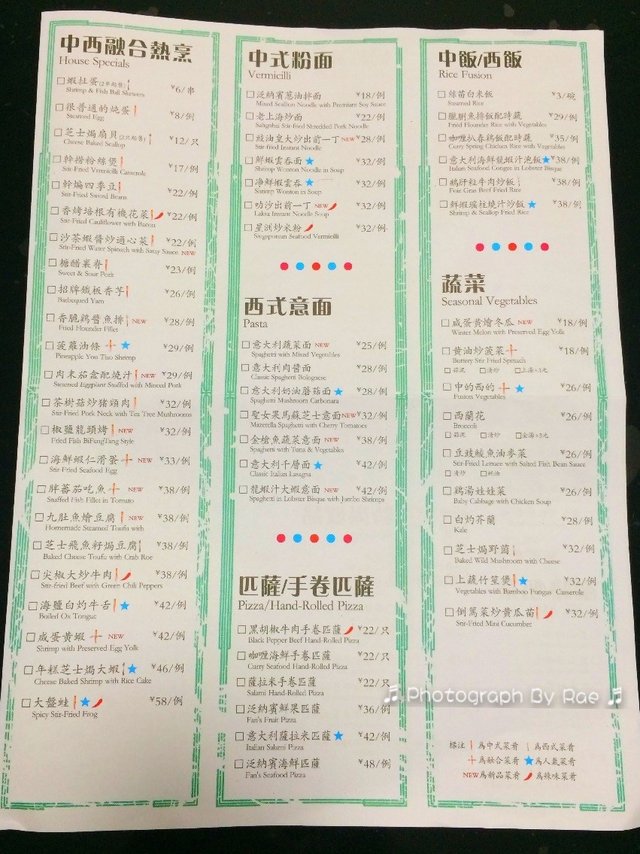 中西融合熱烹
House Specials
蝦扯蛋(2串起售) ¥6/串
Shrimp & Fish Ball Skewers
很普通的燒蛋 ¥8/例
Steamed Egg
芝士焗扇貝(2只起售) ¥12/只
Cheese Baked Scallop
幹撈粉絲煲 ¥17/例
Stir-Fried Vermicelli Casserole
幹煸四季豆 ¥22/例
Stir-Fried Sword Beans
香烤培根有機花菜 ¥22/例
Stir-Fried Cauliflower with Bacon
沙茶蝦醬炒通心菜 ¥22/例
Stir-Fried Water Spinach with Satay Sauce NEW
糖醋裏脊 ¥23/例
Sweet & Sour Pork
招牌鐵板香芋 ¥26/例
Barbequed Yam
香脆鶏醬魚排 NEW ¥28/例
Fried Flounder Fillet
菠蘿油條 ¥29/例
Pineapple You Tiao Shrimp
肉末茄盒配燒汁 NEW ¥29/例
Steamed Eggplant Stuffed with Minced Pork
茶樹菇炒豬頸肉 ¥32/例
Stir-Fried Pork Neck with Tea Tree Mushrooms
椒鹽龍頭烤 NEW ¥32/例
Fried Fish BiFengTang Style
海鮮蝦仁滑蛋 NEW ¥33/例
Stir-Fried Seafood Egg
胖蕃茄吃魚 NEW ¥38/例
Stuffed Fish Fillet in Tomato
九肚魚燴豆腐 NEW ¥38/例
Homemade Steamed Toufu with
芝士飛魚籽焗豆腐 ¥38/例
Baked Cheese Toufu with Crab Roe
尖椒大炒牛肉 ¥38/例
Stir-Fried Beef with Green Chili Peppers
海鹽白灼牛舌 ¥42/例
Boiled Ox Tongue
咸蛋黃蝦 NEW ¥42/例
Shrimp with Preserved Egg Yolk
年糕芝士焗大蝦 ¥46/例
Cheese Baked Shrimp with Rice Cake
大盤蛙 ¥58/例
Spicy Stir-Fried Frog
中式粉面
Vermicelli
泛納賓葱油拌面 ¥18/例
Mixed Scallion Noodle with Premium Soy Sauce
老上海炒面 ¥22/例
Sangahai Stir-fried Shredded Pork Noodle
豉油皇大炒出前一丁 NEW ¥28/例
Stir-fried Instant Noodle
鮮蝦雲吞面 ¥32/例
Shrimp Wonton Noodle in Soup
净鮮蝦雲吞 ¥32/例
Shrimp Wonton in Soup
叻沙出前一丁 NEW ¥32/例
Laksa Instant Noodle Soup
星洲炒米粉 ¥32/例
Singaporean Seafood Vermicelli
西式意面
Pasta
意大利蔬菜面 NEW ¥25/例
Spaghetti with Mixed Vegetables
意大利肉醬面 ¥28/例
Classic Spaghetti Bolognese
意大利奶油蘑菇面 ¥28/例
Spaghetti Mushroom Carbonara
聖女果馬蘇芝士意面 NEW ¥32/例
Mazerella Spaghetti with Cherry Tomatoes
金槍魚蔬菜意面 NEW ¥38/例
Spaghetti with Tuna & Vegetables
意大利千層面 ¥42/例
Classic Italian Lasagna
龍蝦汁大蝦意面 NEW ¥42/例
Spaghetti in Lobster Bisque with Jumbo Shrimps
匹薩/手卷匹薩
Pizza/Hand-Rolled Pizza
黑胡椒牛肉手卷匹薩 ¥22/只
Black Pepper Beef Hand-Rolled Pizza
咖喱海鮮手卷匹薩 ¥22/只
Curry Seafood Hand-Rolled Pizza
薩拉米手卷匹薩 ¥22/只
Salami Hand-Rolled Pizza
泛納賓鮮果匹薩 ¥36/例
Fan's Fruit Pizza
意大利薩拉米匹薩 ¥42/例
Italian Salami Pizza
泛納賓海鮮匹薩 ¥48/例
Fan's Seafood Pizza
中飯/西飯
Rice Fusion
絲苗白米飯 ¥3/碗
Steamed Rice
臘脷魚排飯配時蔬 ¥29/例
Fried Flounder Rice with Vegetables
咖喱扒春鶏飯配時蔬 ¥35/例
Curry Spring Chicken Rice with Vegetables
意大利海鮮龍蝦汁泡飯 ¥38/例
Italian Seafood Congee in Lobster Bisque
鵝肝粒牛肉炒飯 ¥38/例
Foie Gras Beef Fried Rice
鮮蝦瑶柱燒汁炒飯 ¥38/例
Shrimp & Scallop Fried Rice
蔬菜
Seasonal Vegetables
咸蛋黃燴冬瓜 NEW ¥18/例
Winter Melon with Preserved Egg Yolk
黃油炒菠菜 ¥18/例
Buttery Stir-Fried Spinach
蒜泥 清炒 上湯+3元
中的西的 ¥26/例
Fusion Vegetables
西蘭花 ¥26/例
Broccoli
蒜泥 清炒
豆豉鯪魚油麥菜 ¥26/例
Stir-Fried Lettuce with Salted Fish Bean Sauce
鶏湯娃娃菜 ¥26/例
Baby Cabbage with Chicken Soup
白灼芥蘭 ¥28/例
Kale
芝士焗野菌 ¥32/例
Baked Wild Mushroom with Cheese
上蔬竹笙煲 ¥32/例
Vegetables with Bamboo Fungus Casserole
倒篤菜炒黃瓜苗 ¥32/例
Stir-Fried Mini Cucumber
♫ Photograph By Rae ♫
標注 爲中式菜肴 爲西式菜肴
爲融合菜肴 爲人氣菜肴
NEW爲新品菜肴 爲辣味菜肴